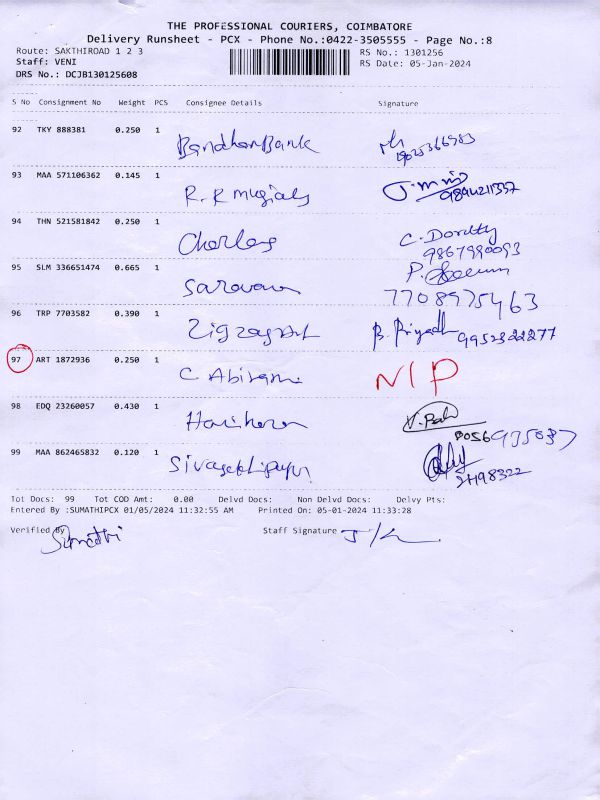 THE PROFESSIONAL COURIERS, COIMBATORE
Delivery Runsheet - PCX - Phone No.:0422-3505555 - Page No.:8
Route: SAKTHIROAD 1 2 3 RS No.: 1301256
Staff: VENI RS Date: 05-Jan-2024
DRS No.: DCJB130125608
S No Consignment No Weight PCS Consignee Details Signature
92 TKY 888381 0.250 1 Bandhan Bank
93 MAA 571106362 0.145 1 R.R
94 THN 521581842 0.250 1 Charles C. Dorothy
9867990093
95 SLM 336651474 0.665 1 Saravana P.
7708975463
96 TRP 7703582 0.390 1 Zigzag Art B. Priyadh 9952322277
97 ART 1872936 0.250 1 C Abirami N/P
98 EDQ 23260057 0.430 1 Hariharan
99 MAA 862465832 0.120 1
Tot Docs: 99 Tot COD Amt: 0.00 Delvd Docs: Non Delvd Docs: Delvy Pts:
Entered By :SUMATHIPCX 01/05/2024 11:32:55 AM Printed On: 05-01-2024 11:33:28
Verified By Sumathi Staff Signature